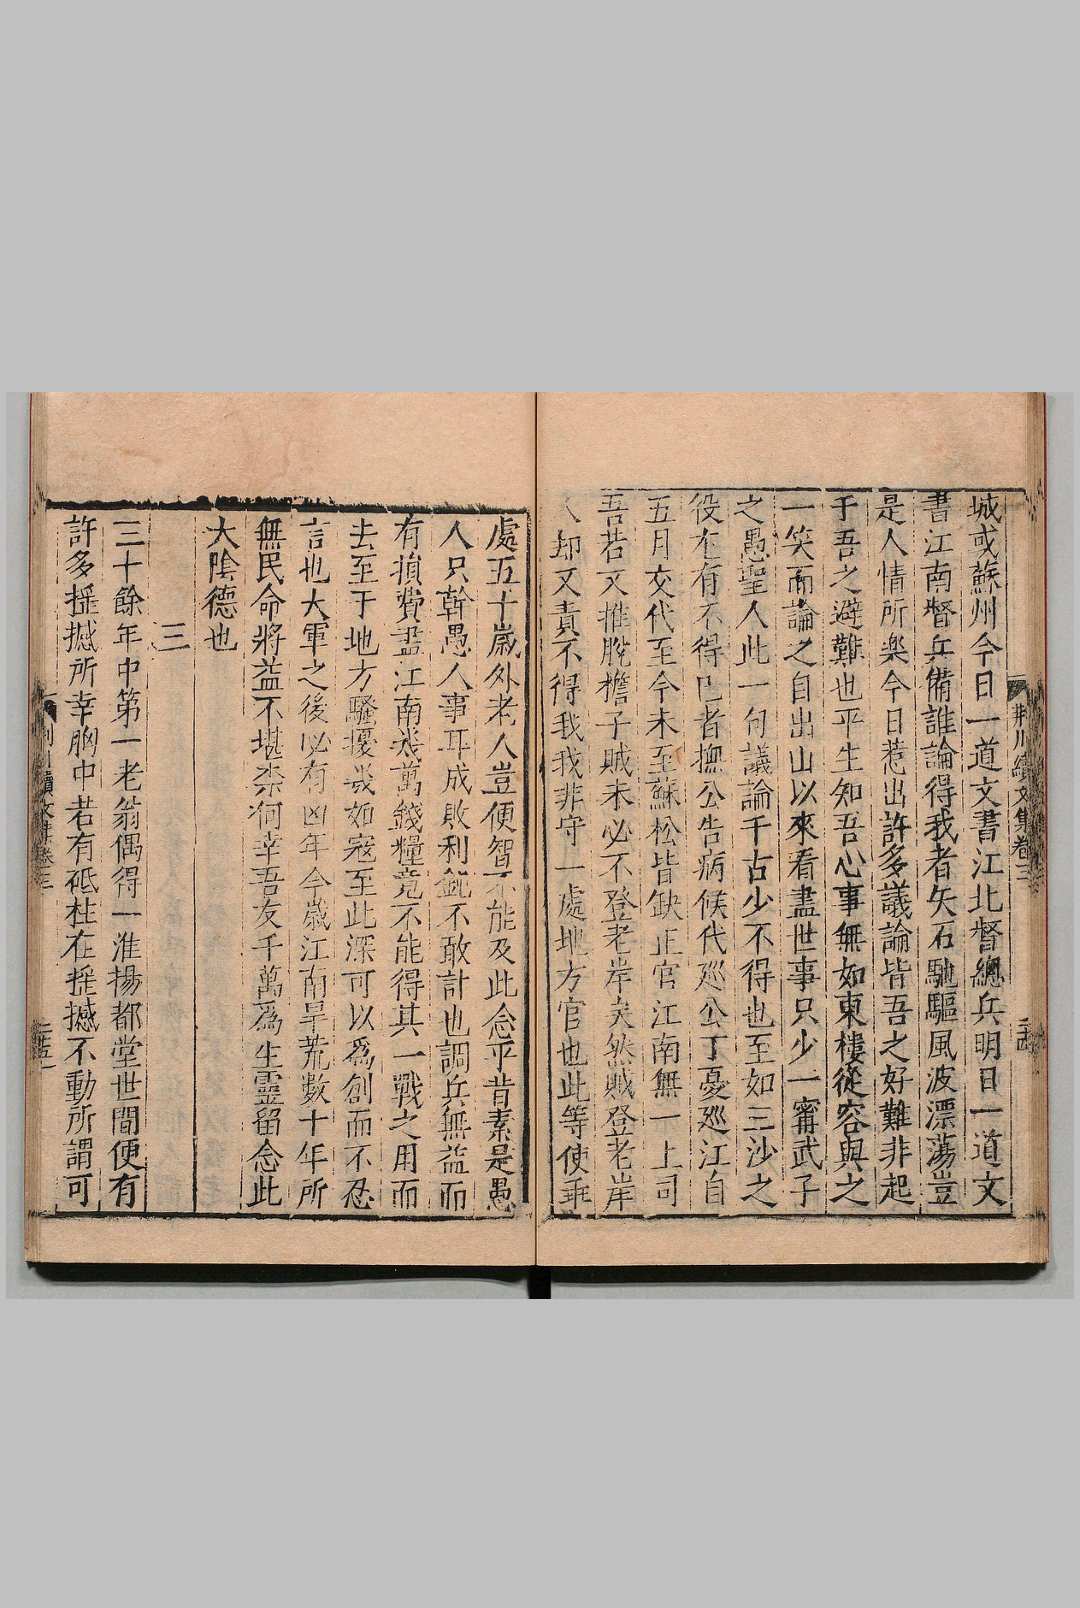 城或蘇州今日一道文書江北督總兵明日一道文
書江南督兵備誰論得我者矢石馳驅風波漂蕩豈
是人情所樂今日惹出許多議論皆吾之好難非起
于吾之避難也平生知吾心事無如東樓從容與之
一笑而論之自出山以來看盡世事只少一甯武子
之愚聖人此一句議論千古少不得也至如三沙之
役有不得已者撫公告病候代巡公丁憂巡江自
五月交代至今未至蘇松皆缺正官江南無一上司
吾若又推脫擔子賊未必不登老岸矣然賊登老岸
却又責不得我我非守一處地方官也此等使乖
處五十歲外老人豈便智不能及此念平昔素是愚
人只幹愚人事耳成敗利鈍不敢計也調兵無益而
有損費盡江南幾萬錢糧竟不能得其一戰之用而
去至于地方騷擾幾如寇至此深可以為創而不忍
言也大軍之後必有凶年今歲江南旱荒數十年所
無民命將益不堪柰何幸吾友千萬為生靈留念此
大陰德也
三
三十餘年中第一老翁偶得一淮揚都堂世間便有
許多搖撼所幸胸中若有砥柱在搖撼不動所謂可
荊川續文集卷三
二十四
荊川續文集卷三
二十五